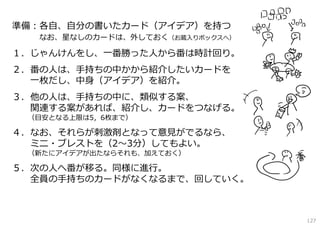 準備：各自、自分の書いたカード（アイデア）を持つ
なお、星なしのカードは、外しておく（お蔵入りボックスへ）
１．じゃんけんをし、一番勝った人から番は時計回り。
２．番の人は、手持ちの中かから紹介したいカードを
一枚だし、中身（アイデア）を紹介。
３．他の人は、手持ちの中に、類似する案、
関連する案があれば、紹介し、カードをつなげる。
（目安となる上限は5，6枚まで）
４．なお、それらが刺激剤となって意見がでるなら、
ミニ・ブレストを（2〜3分）してもよい。
（新たにアイデアが出たならそれも、加えておく）
５．次の人へ番が移る。同様に進行。
全員の手持ちのカードがなくなるまで、回していく。
127